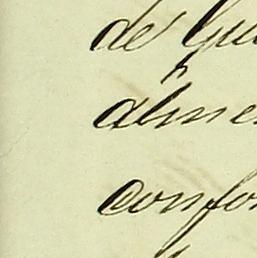 de Gui
alimen
confor